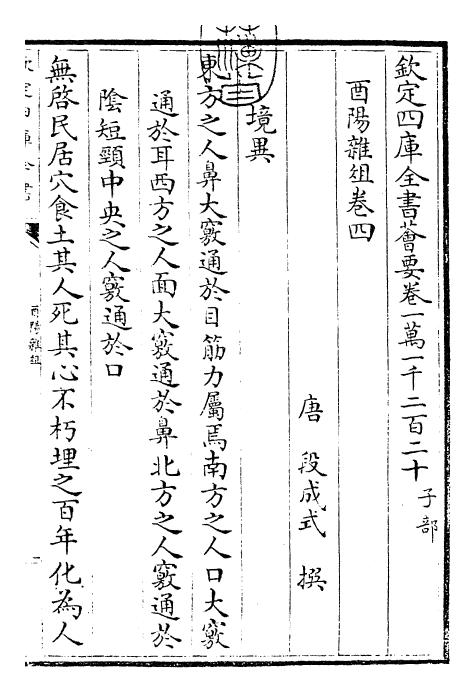 欽定四庫全書薈要卷一萬一千二百二十 子部
酉陽雜俎卷四
唐 段成式 撰
境異
東方之人鼻大竅通於目筋力屬焉南方之人口大竅
通於耳西方之人面大竅通於鼻北方之人竅通於
陰短頸中央之人竅通於口
無啓民居穴食土其人死其心不朽埋之百年化為人
欽定四庫全書
酉陽雜俎
一